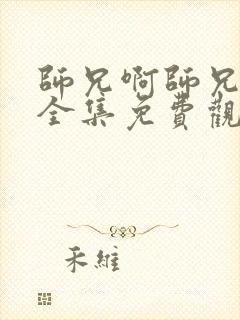 師兄啊師兄
全集免費觀
禾維